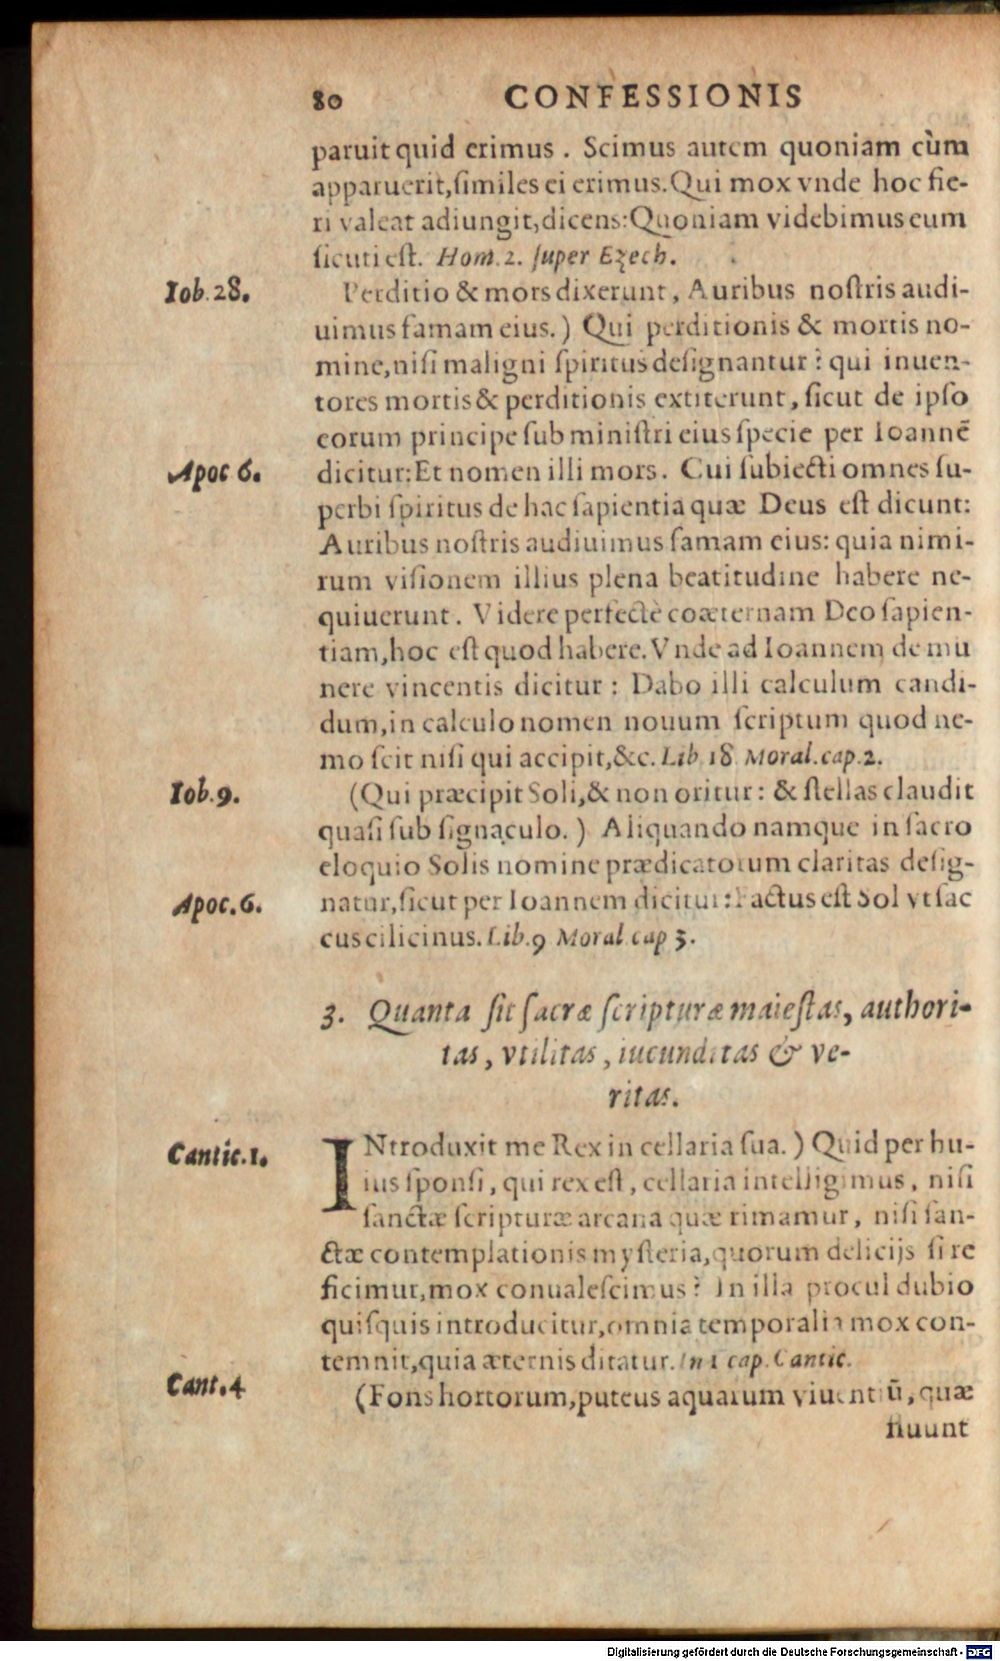 80 CONFESSIONIS
paruit quid erimus. Scimus autem quoniam cùm
apparuerit, ſimiles ei erimus. Qui mox vnde hoc fie-
ri valeat adiungit, dicens: Quoniam videbimus eum
ſicuti eſt. Hom. 2. ſuper Ezech.
Iob. 28. Perditio & mors dixerunt, Auribus noſtris audi-
uimus famam eius.) Qui perditionis & mortis no-
mine, niſi maligni ſpiritus deſignantur? qui inuen-
tores mortis & perditionis extiterunt, ſicut de ipſo
eorum principe ſub miniſtri eius ſpecie per Ioannẽ
Apoc 6. dicitur: Et nomen illi mors. Cui ſubiecti omnes ſu-
perbi ſpiritus de hac ſapientia quæ Deus eſt dicunt:
Auribus noſtris audiuimus famam eius: quia nimi-
rum viſionem illius plena beatitudine habere ne-
quiuerunt. Videre perfectè coæternam Deo ſapien-
tiam, hoc eſt quod habere. Vnde ad Ioannem de mu
nere vincentis dicitur: Dabo illi calculum candi-
dum, in calculo nomen nouum ſcriptum quod ne-
mo ſcit niſi qui accipit, &c. Lib. 18 Moral. cap. 2.
Iob. 9. (Qui præcipit Soli, & non oritur: & ſtellas claudit
quaſi ſub ſignaculo.) Aliquando namque in ſacro
eloquio Solis nomine prædicatorum claritas deſig-
Apoc. 6. natur, ſicut per Ioannem dicitur: Factus eſt Sol vt ſac
cus cilicinus. Lib. 9 Moral. cap 3.
3. Quanta ſit ſacræ ſcripturæ maieſtas, authori-
tas, vtilitas, iucunditas & ve-
ritas.
Cantic. 1. INtroduxit me Rex in cellaria ſua.) Quid per hu-
ius ſponſi, qui rex eſt, cellaria intelligimus, niſi
ſanctæ ſcripturæ arcana quæ rimamur, niſi ſan-
ctæ contemplationis myſteria, quorum delicijs ſi re
ficimur, mox conualeſcimus? In illa procul dubio
quiſquis introducitur, omnia temporalia mox con-
temnit, quia æternis ditatur. In 1 cap. Cantic.
Cant. 4 (Fons hortorum, puteus aquarum viuentiũ, quæ
fluunt
Digitalisierung gefördert durch die Deutsche Forschungsgemeinschaft - DFG